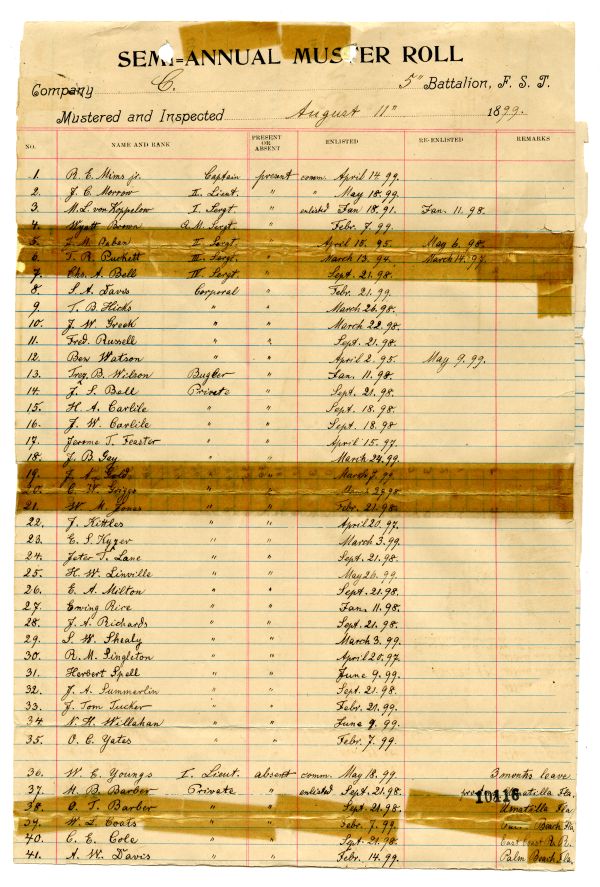 SEMI=ANNUAL MUSTER ROLL
Company C. 5" Battalion, F. S. T.
Mustered and Inspected August 11" 1899.
NO. NAME AND RANK PRESENT OR ABSENT ENLISTED RE-ENLISTED REMARKS
1. R. E. Mims jr. Captain present comm. April 14. 99.
2. J. C. Morrow II. Lieut. " " May 18. 99.
3. M. L. von Koppelow I. Sergt. " enlisted Jan. 18. 91. Jan. 11. 98.
4. Wyatt Brown Q. M. Sergt. " Febr. 7. 99.
5. J. M. II. Sergt. " April 18. 95. May 6. 98.
6. T. R. Puckett III. Sergt. " March 13. 94. March 14. 97.
7. Chs. A. Bell IV. Sergt. " Sept. 21. 98.
8. S. A. Davis Corporal " Febr. 21. 99.
9. T. B. Hicks " " March 26. 98.
10. J. W. Greek " " March 22. 98.
11. Fred. Russell " " Sept. 21. 98.
12. Ben Watson " " April 2. 95. May 9. 99.
13. Trez. B. Wilson Bugler " Jan. 11. 98.
14. J. S. Bell Private " Sept. 21. 98.
15. H. A. Carlile " " Sept. 18. 98.
16. J. W. Carlile " " Sept. 18. 98
17. Jerome T. Feaster " " April 15. 97.
18. J. B. Gay " " March 24. 99.
19. J. N. Gold " " March 7. 99
20. C. W. Griggs " " March 28. 98.
21. W. M. Jones " " Febr. 21. 98.
22. J. Kittles " " April 20. 97.
23. E. S. Kyzer " " March 3. 99.
24. Jeter T. Lane " " Sept. 21. 98.
25. H. W. Linville " " May 26. 99.
26. E. A. Milton " " Sept. 21. 98.
27. Ewing Rice " " Jan. 11. 98.
28. J. A. Richards " " Sept. 21. 98.
29. S. W. Shealy " " March 3. 99.
30. R. M. Singleton " " April 20. 97.
31. Herbert Spell " " June 9. 99.
32. J. A. Summerlin " " Sept. 21. 98.
33. J. Tom Tucker " " Febr. 21. 99.
34. N. H. Willahan " " June 9. 99.
35. O. C. Yates " " Febr. 7. 99.
36. W. E. Youngs I. Lieut. absent comm. May 18. 99. 3 months leave
37. M. B. Barber Private " enlisted Sept. 21. 98. Umatilla Fla.
10416
38. O. T. Barber " " Sept. 21. 98. Umatilla Fla
39. W. L. Coats " " Febr. 7. 99. Palm Beach Fla.
40. C. E. Cole " " Sept. 21. 98. East Coast R. R.
41. A. W. Davis " " Febr. 14. 99. Palm Beach, Fla.